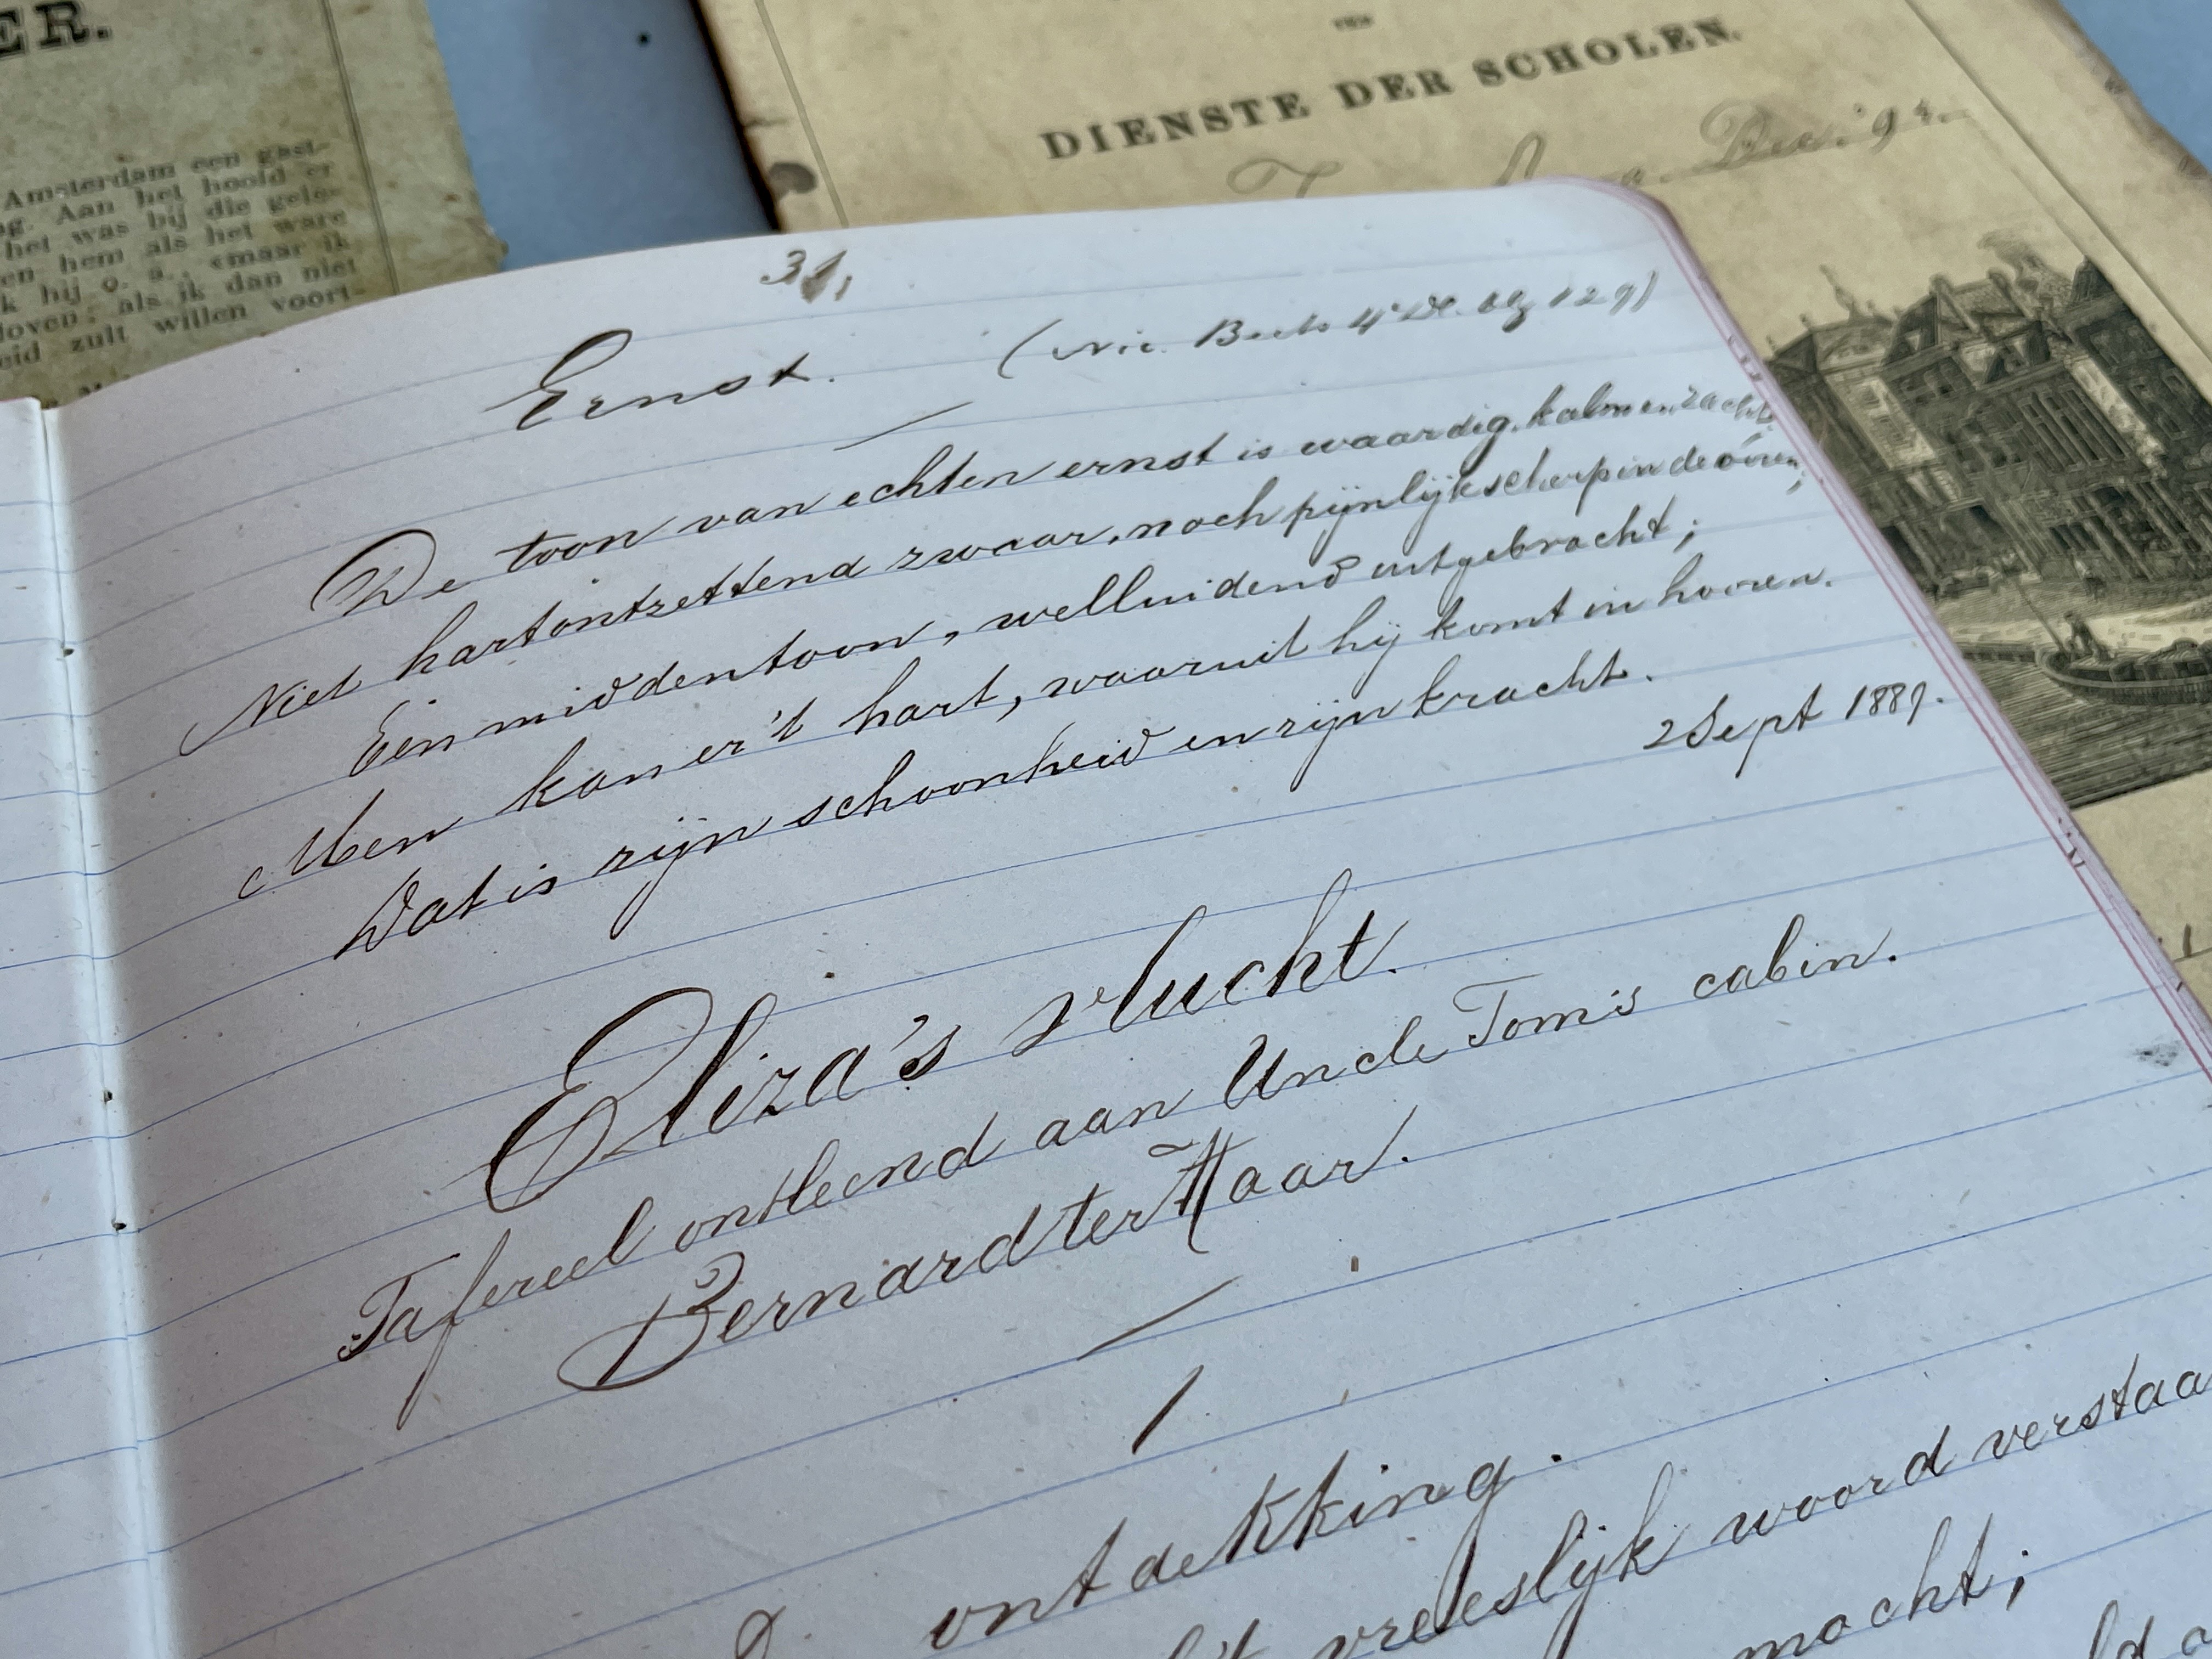 ER.
Amsterdam een gast-
Aan het hoofd er
het was bij die gele-
en hem als het ware
k hij o. a., «maar ik
loven; als ik dan niet
eid zult willen voort-
DIENSTE DER SCHOLEN.
Dec. '94.
31,
Ernst. (Nic. Beets 4e Dl. blz 129)
De toon van echten ernst is waardig, kalm en zacht,
Niet hartontzettend zwaar, noch pijnlijk scherp in de ooren;
Eén middentoon, welluidend uitgebracht;
Men kan er 't hart, waaruit hij komt in hooren.
Dat is zijn schoonheid en zijn kracht.
2 Sept 1889.
Eliza's vlucht.
Tafereel ontleend aan Uncle Tom's cabin.
Bernard ter Haar.
1
D. ontdekking.
't vreeslijk woord verstaa
mocht;